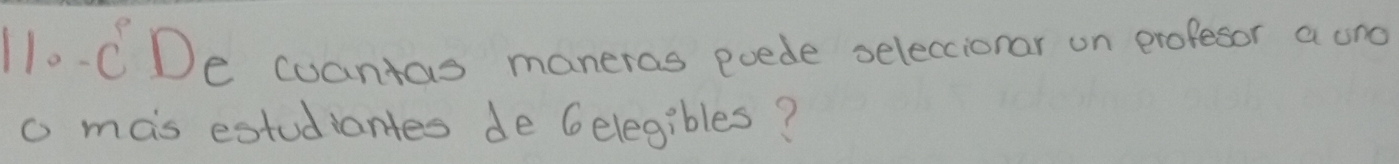 11.-¿De cuantas maneras puede seleccionar un profesor a uno
o más estudiantes de 6 elegibles?